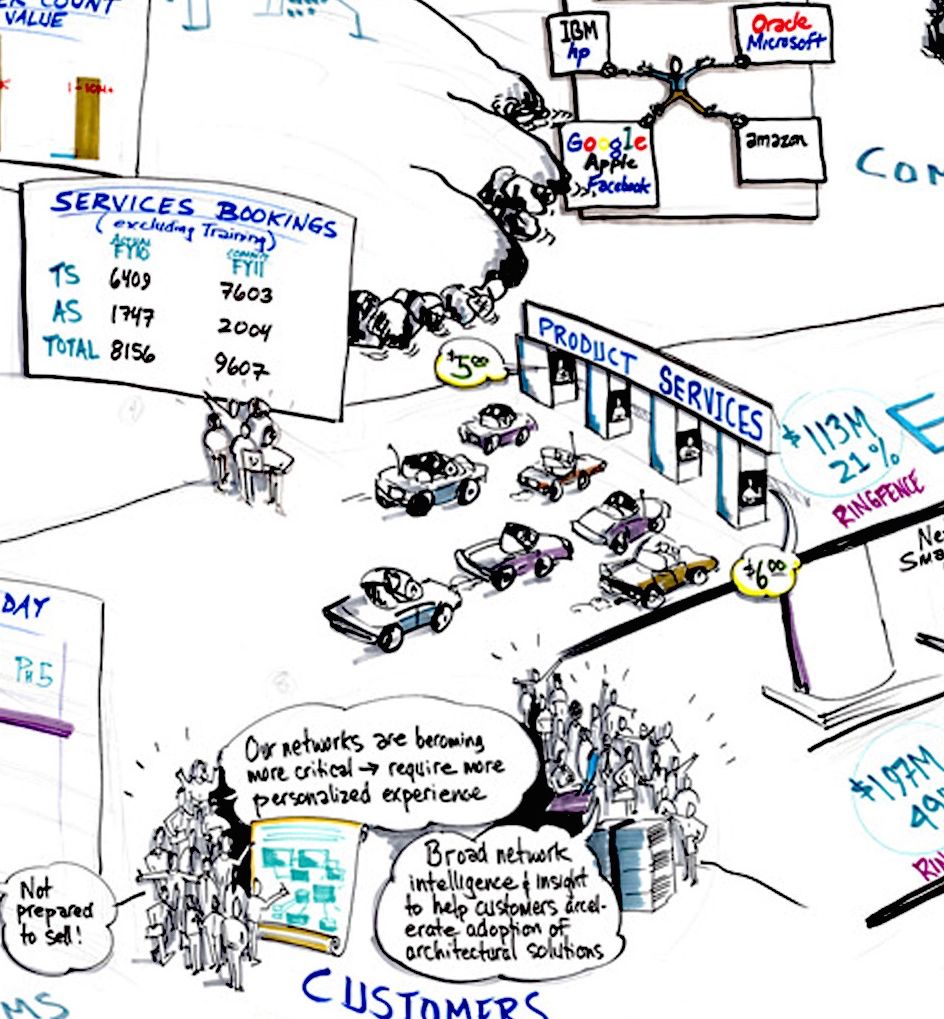 COUNT
VALUE
IBM
hp
Oracle
Microsoft
Google
Apple
Facebook
amazon
SERVICES BOOKINGS
(excluding Training)
ACTUAL
FY10
COMMIT
FY11
TS 6409 7603
AS 1747 2004
TOTAL 8156 9607
$5.00
PRODUCT SERVICES
$113M
21%
RINGFENCE
$6.00
DAY
PH5
Our networks are becoming
more critical → require more
personalized experience
Broad network
intelligence & insight
to help customers accel-
erate adoption of
architectural solutions
Not
prepared
to sell!
$197M
CUSTOMERS